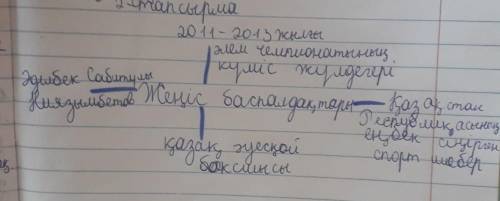 2-тапсырма
2011-2013 жылғы
әлем чемпионатының
күміс жүлдегері
Әділбек Сабитұлы
Ниязымбетов Жеңіс баспалдақтары Қазақстан
Республикасының
еңбек сіңірген
спорт шебер
қазақ әуесқой
боксшысы